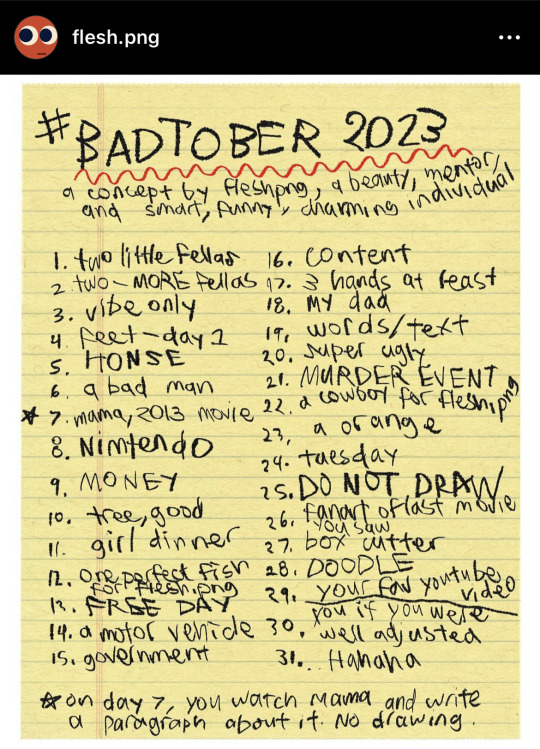 flesh.png
#BADTOBER 2023
a concept by fleshpng, a beauty, mentor,
and smart, funny, charming individual
1. two little fellas
2. two-MORE fellas
3. vibe only
4. feet-day 1
5. HONSE
6. a bad man
☆ 7. mama, 2013 movie
8. Nimtendo
9. MONEY
10. tree, good
11. girl dinner
12. one perfect fish
for flesh.png
13. FREE DAY
14. a motor vehicle
15. government
16. content
17. 3 hands at least
18. MY dad
19. words/text
20. super ugly
21. MURDER EVENT
22. a cowboy for flesh.png
23. a orange
24. tuesday
25. DO NOT DRAW
26. fanart of last movie
you saw
27. box cutter
28. DOODLE
29. your fav youtube
video
30. you if you were
well adjusted
31. Hahaha
☆ on day 7, you watch Mama and write
a paragraph about it. No drawing.